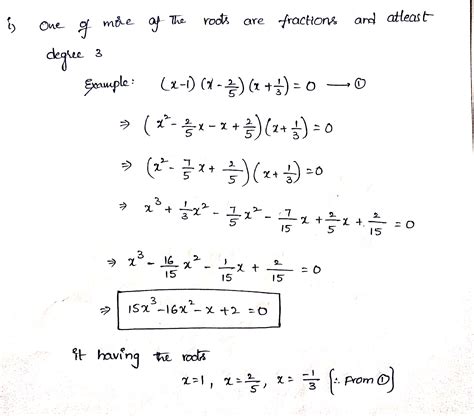 i) One of more of the roots are fractions and atleast
degree 3
Example: (x-1) (x - 2/5) (x + 1/3) = 0 → ①
⇒ (x² - 2/5 x - x + 2/5) (x + 1/3) = 0
⇒ (x² - 7/5 x + 2/5) (x + 1/3) = 0
⇒ x³ + 1/3 x² - 7/5 x² - 7/15 x + 2/5 x + 2/15 = 0
⇒ x³ - 16/15 x² - 1/15 x + 2/15 = 0
⇒ 15x³ - 16x² - x + 2 = 0
it having the roots
x = 1, x = 2/5, x = -1/3 [∵ from ①]